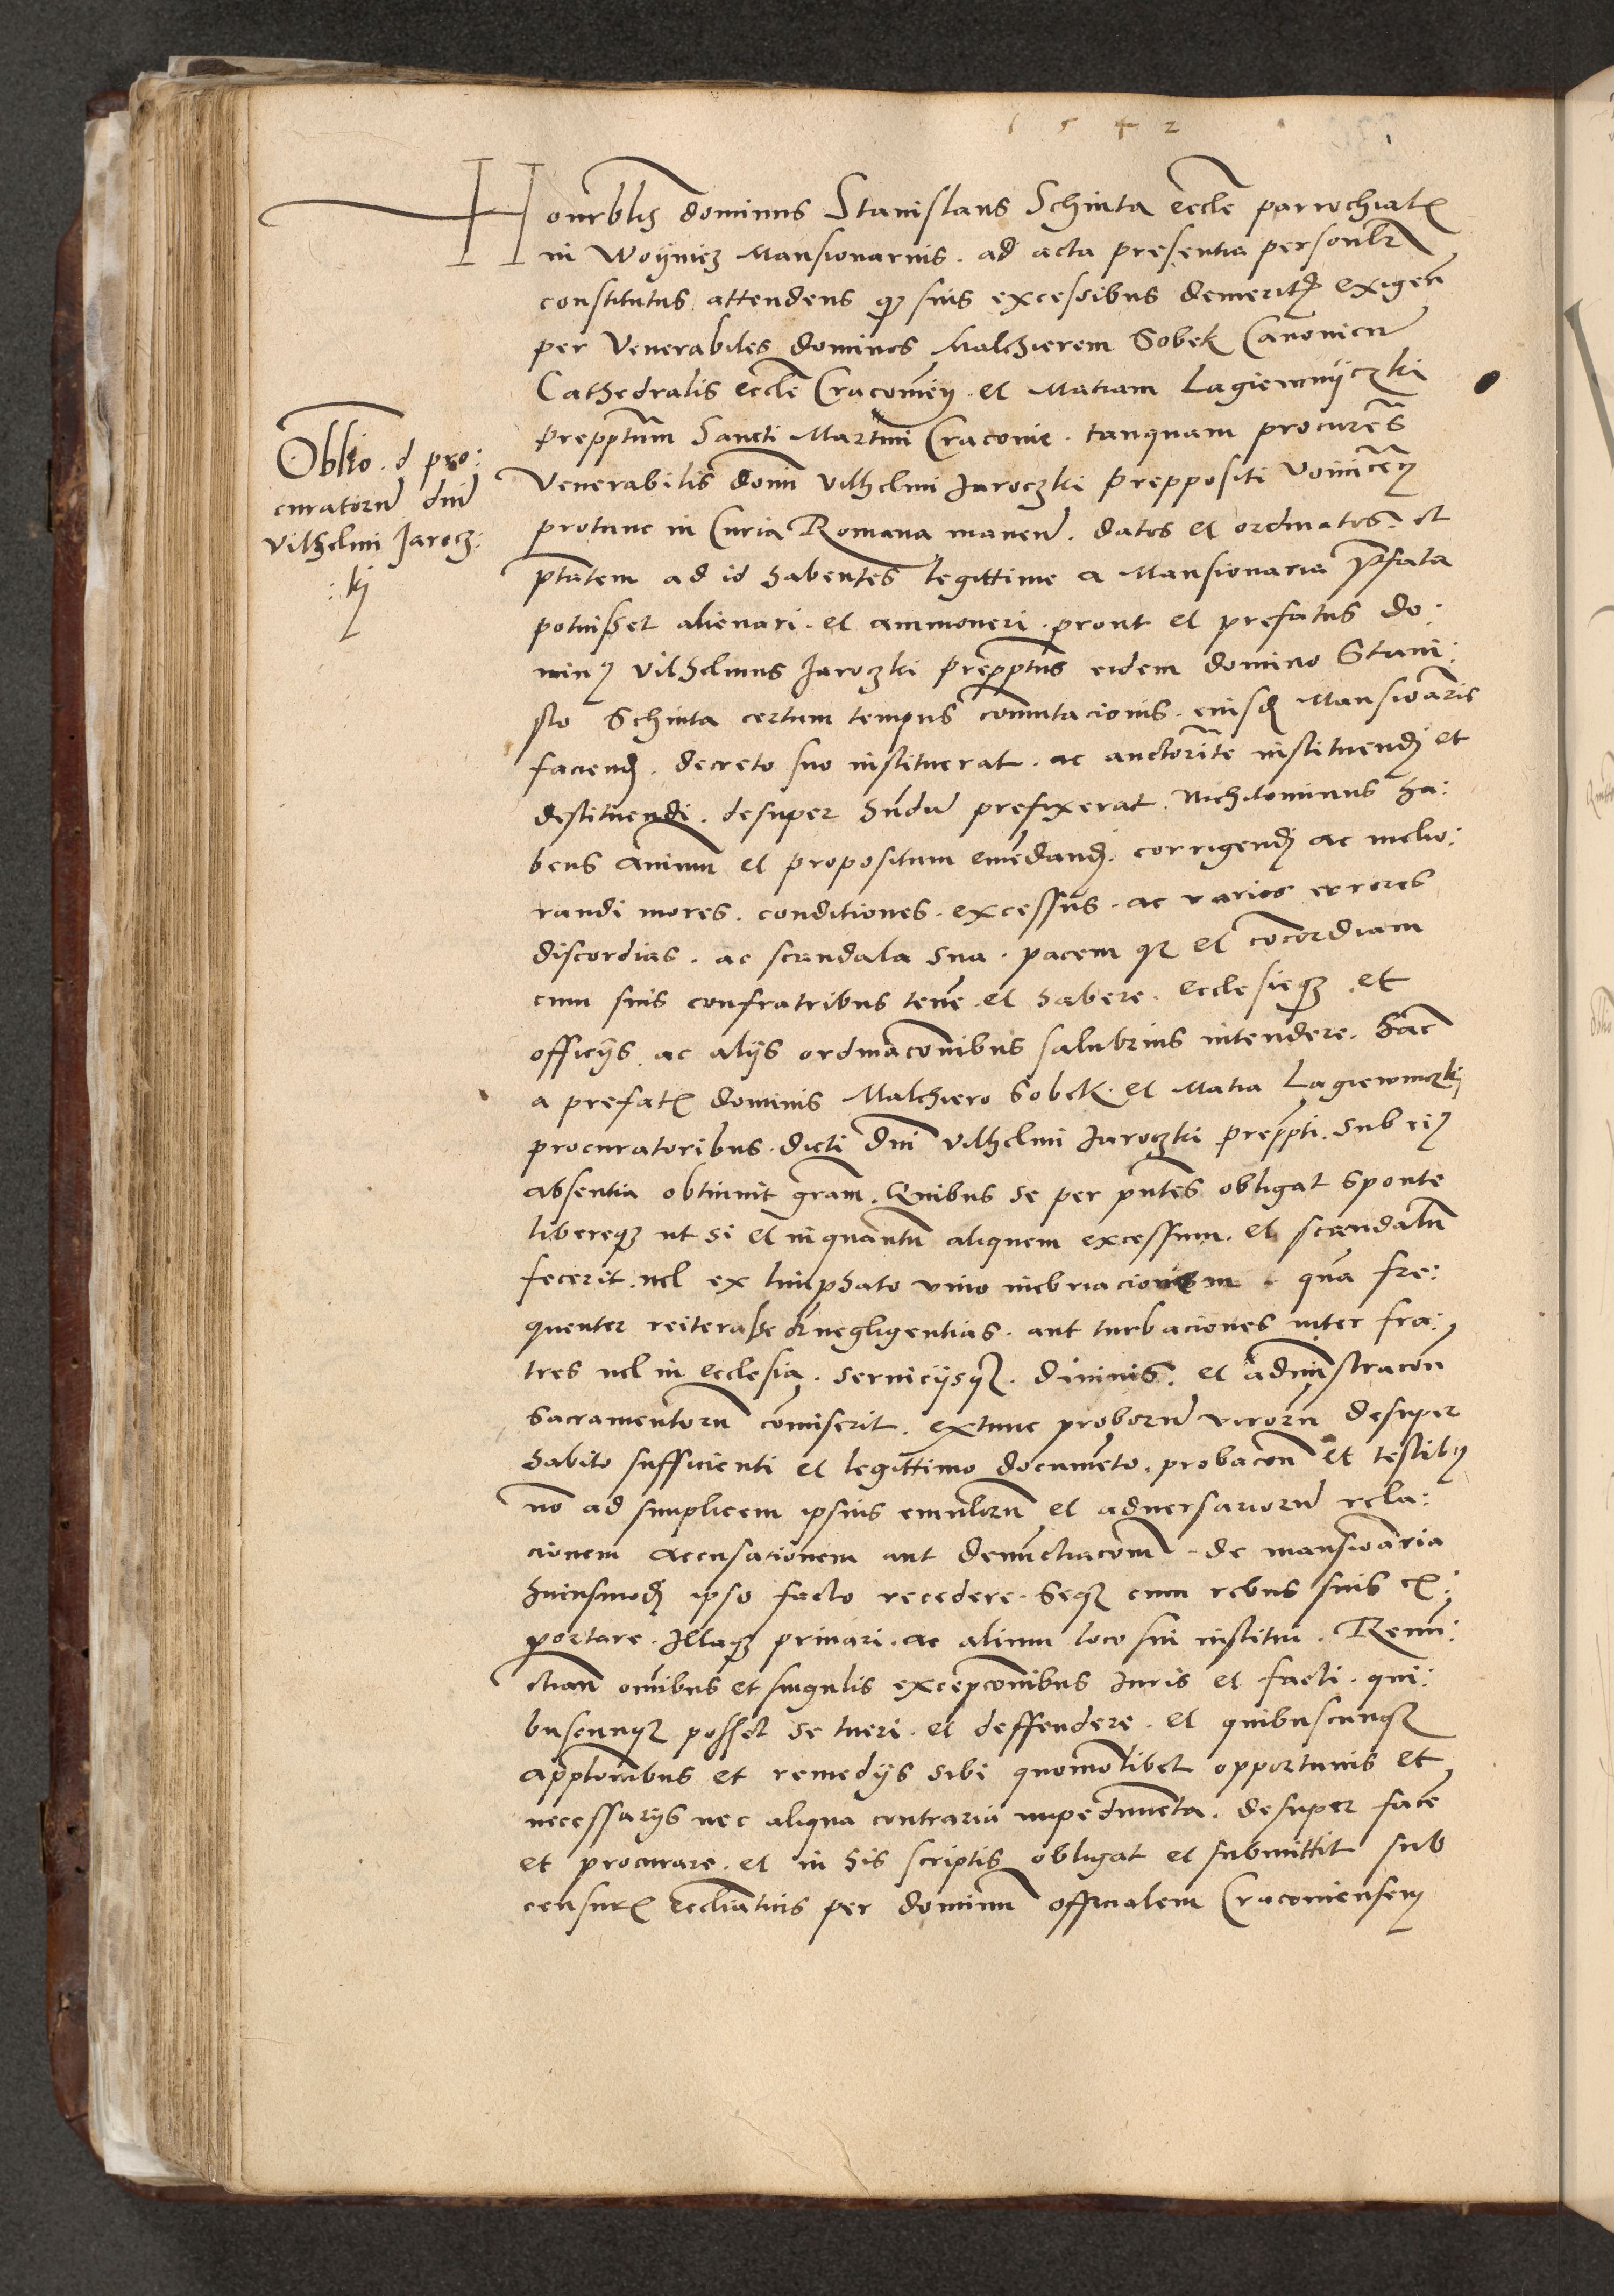 1542
Honrblis dominus Stanislaus Schinta eccle parrochial
in Woynicz Mansionarius. ad acta presentia personlr
constitutus attendens q suis excessibus demerit exigen
per Venerabiles dominos Malchierem Sobek Canonicu
Cathedralis eccle Cracovien. et Matiam Lagiewnyczki
prepptum Sancti Martini Cracovie. tanquam procures
Venerabilis domi Vilhelmi Jaroczki preppositi Voinicen
protunc in Curia Romana manen. datos et ordinatos. et
ptatem ad id habentes legittime a Mansionaria pfata
potuisset alienari. et ammoveri. prout et prefatus do:
minus Vilhelmus Jaroczki prepptus eidem domino Stani:
slo Schinta certum tempus comutacionis. eiusd Mansioaris
faciend. decreto suo instituerat. ac auctorite instituendi et
destituendi. desuper hndu prefixerat. Nichilominus ha:
bens animu et propositum emedand. corrigend ac melio:
randi mores. conditiones. excessus. ac varios errores
discordias. ac scandala sua. pacem q et cocordiam
cum suis confratribus tene. et habere. ecclesieq et
officijs. ac alijs ordinaconibus salubrius intendere. hac
a prefat dominis Malchiero Sobek. et Matia Lagiewniczkij
procuratoribus. dicti dni Vilhelmi Jaroczki preppti. sub eius
absentia obtinuit gram. Quibus se per pntes obligat sponte
libereq ut si et inquantu aliquem excessum. et scandalu
fecerit. vel ex limphato vino inebriacionem. qua fre:
quenter reiterasse negligentias. aut turbaciones inter fra:
tres vel in ecclesia. servicijsq. divinis. et adminstracon
sacramentoru comiserit. extunc proboru viroru desuper
habito sufficienti et legittimo documeto. probacon et testibus
no ad simplicem ipsius emuloru et adversarioru rela:
cionem accusationem aut denuctiacom. de mansioaria
huiusmodi ipso facto recedere. Seq cum rebus suis ex:
portare. Illaq privari. ac alium loco sui institui. Renu:
ctian omibus et singulis excepconibus Iuris et facti. qui:
buscunq posset se tueri. et deffendere. et quibuscunq
applonibus et remedijs sibi quomolibet opportunis et
necessarijs nec aliqua contraria impedimeta. desuper face
et procurare. et in his scriptis obligat et submittit sub
censur ecclianticis per dominu officialem Cracoviensem
Oblio. d pro:
curatoru dni
Vilhelmi Jarocz:
:kj